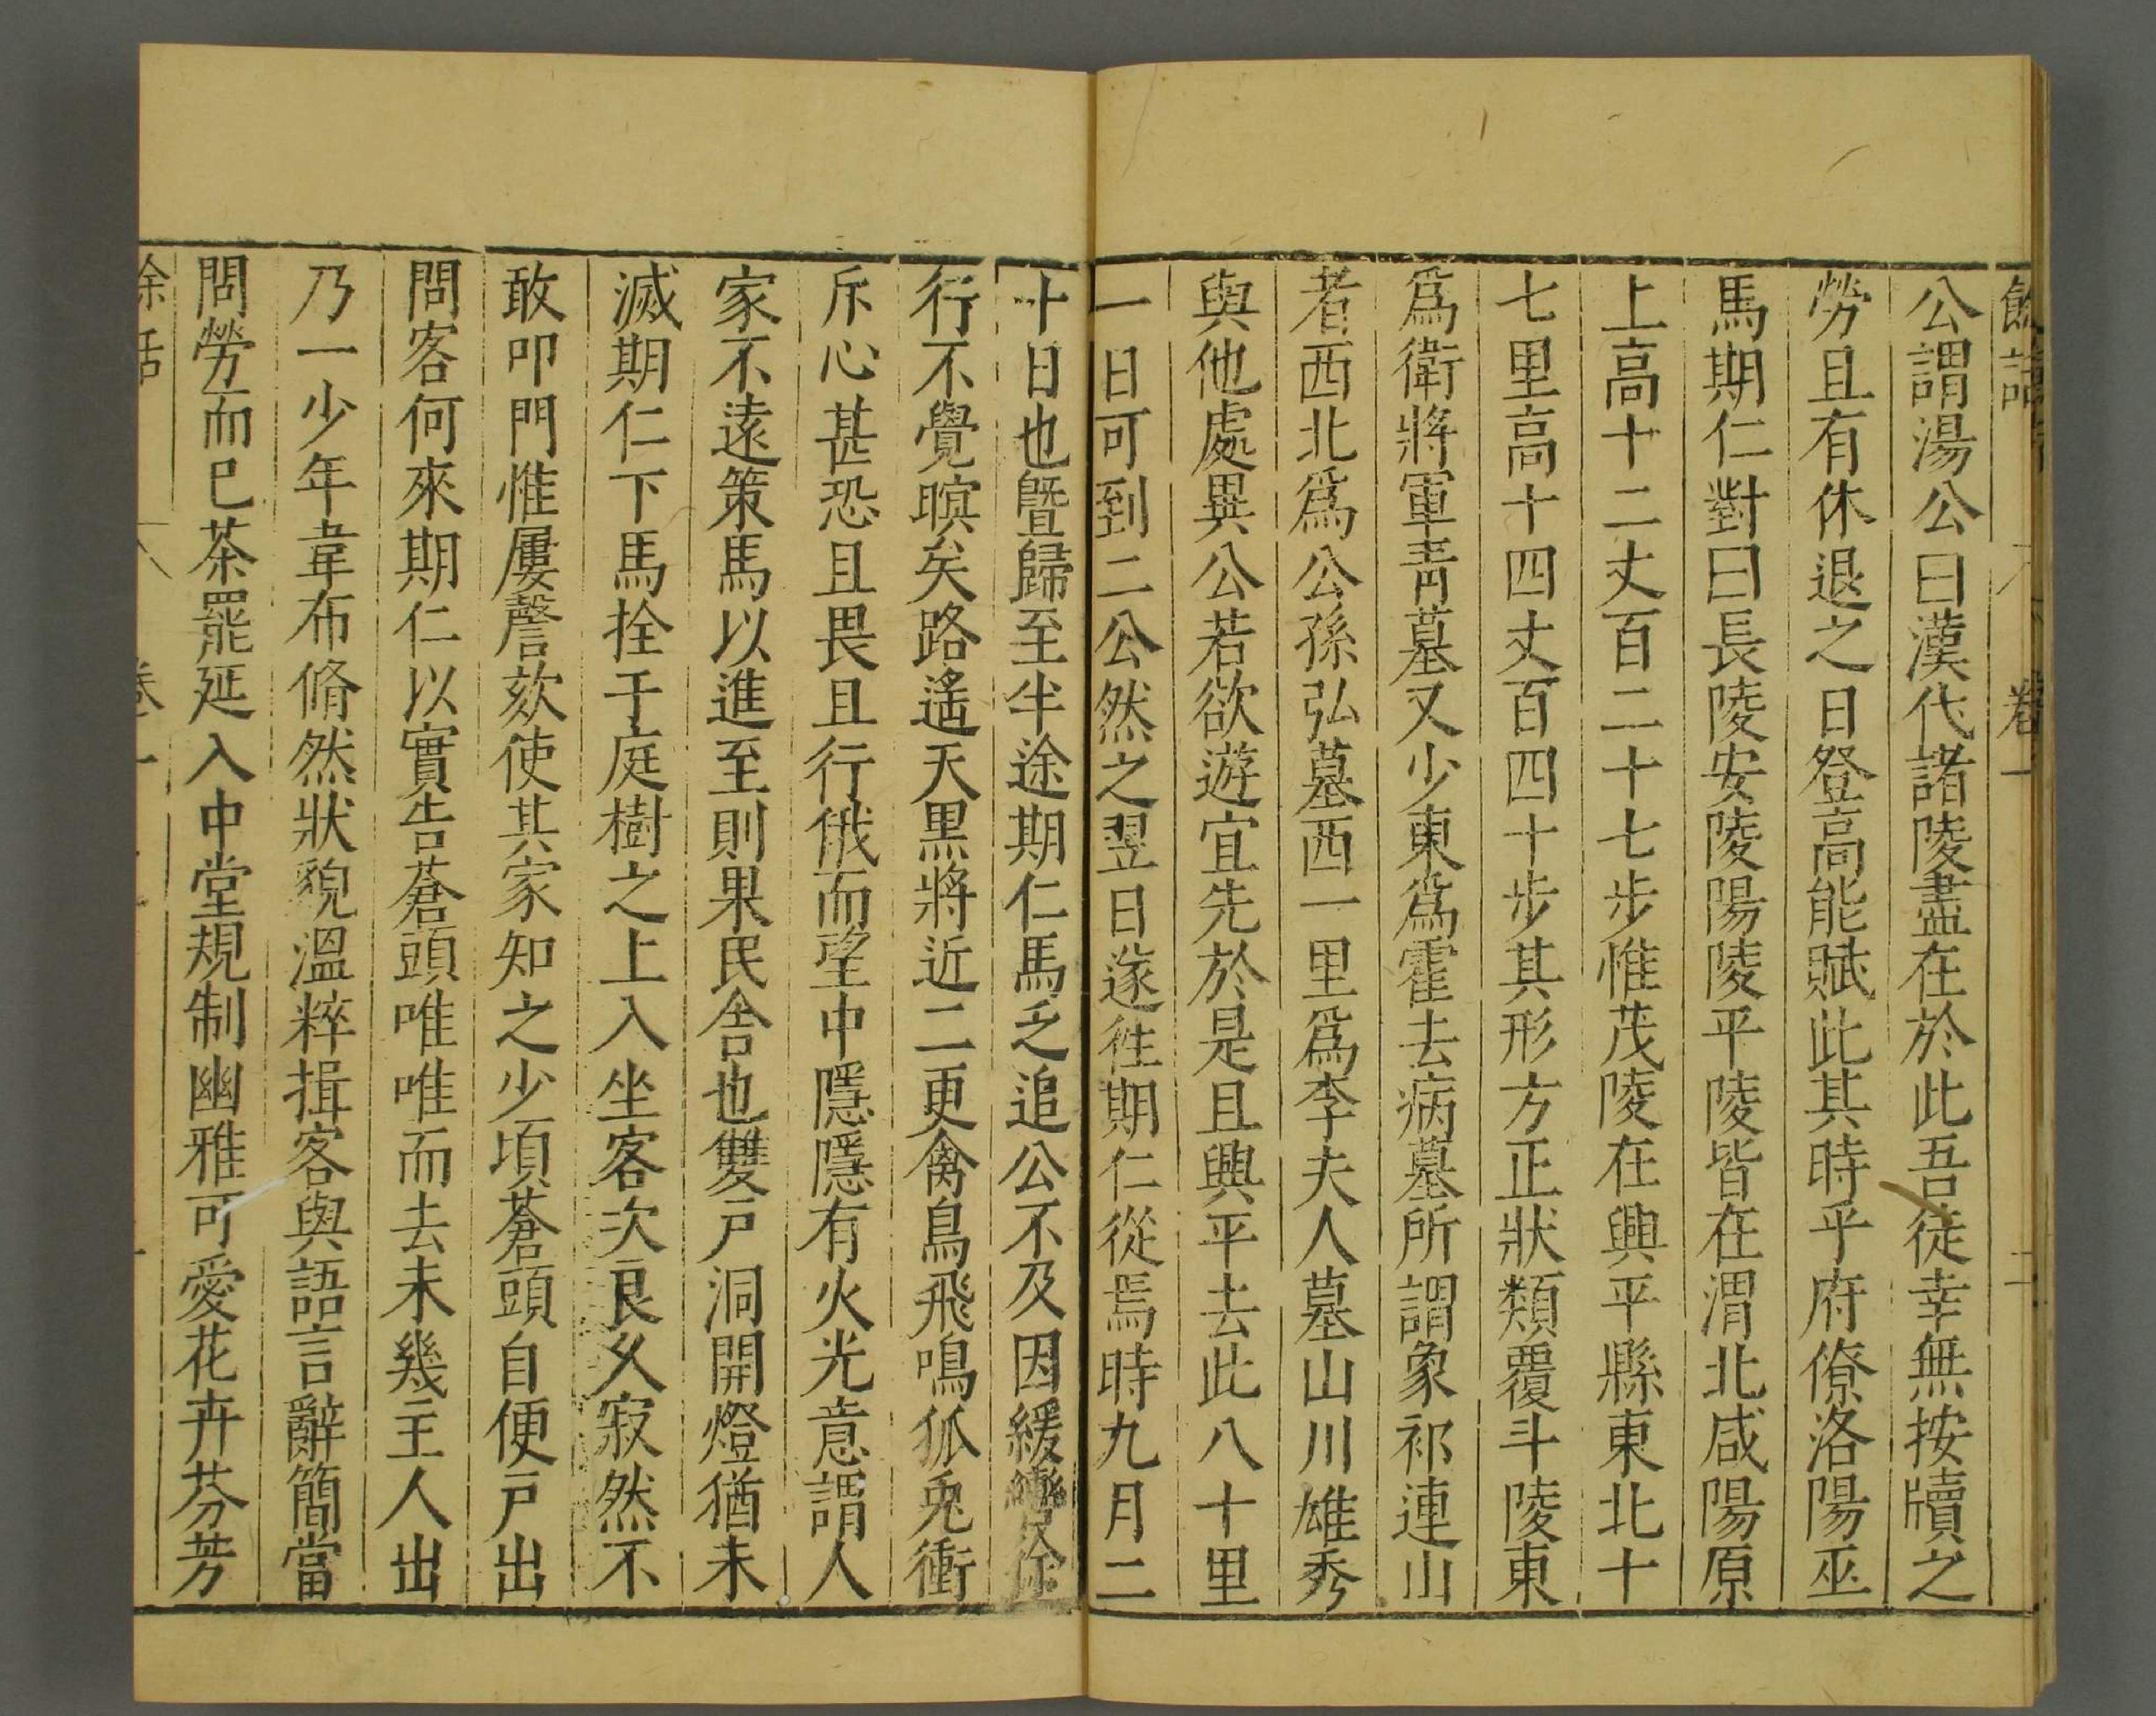 餘話 卷一 二
公謂湯公曰漢代諸陵盡在於此吾徒幸無按牘之
勞且有休退之日登高能賦此其時乎府僚洛陽巫
馬期仁對曰長陵安陵陽陵平陵皆在渭北咸陽原
上高十二丈百二十七步惟茂陵在興平縣東北十
七里高十四丈百四十步其形方正狀類覆斗陵東
爲衛將軍青墓又少東爲霍去病墓所謂象祁連山
者西北爲公孫弘墓西一里爲李夫人墓山川雄秀
與他處異公若欲遊宜先於是且興平去此八十里
一日可到二公然之翌日遂徃期仁從焉時九月二
十日也曁歸至半途期仁馬乏追公不及因緩轡徐
行不覺暝矣路遙天黑將近二更禽鳥飛鳴狐兎衝
斥心甚恐且畏且行俄而望中隱隱有火光意謂人
家不遠策馬以進至則果民舍也雙戸洞開燈猶未
滅期仁下馬拴于庭樹之上入坐客次良久寂然不
敢叩門惟屢謦欬使其家知之少頃蒼頭自便戸出
問客何來期仁以實告蒼頭唯唯而去未幾主人出
乃一少年韋布翛然狀貌溫粹揖客與語言辭簡當
問勞而已茶罷延入中堂規制幽雅可愛花卉芬芳
餘話 卷一